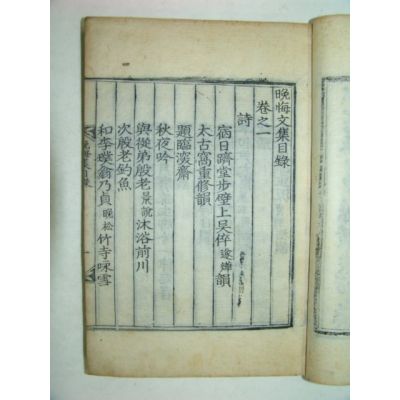 晩悔文集目錄
卷之一
詩
宿日躋堂步壁上吳倅遂燁韻
太古窩重修韻
題臨齋
秋夜吟
與從弟殷老景說沐浴前川
次殷老釣魚
和李璞翁乃貞晩松竹寺咏雪